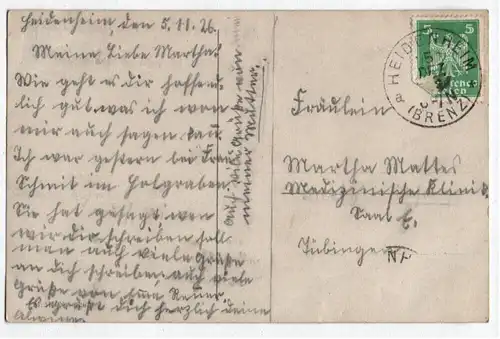 Heidenheim, den 5.11.26.
Meine Liebe Martha!
Wie geht es dir hoffent-
lich gut was ich von
mir auch sagen kan.
Ich war gestern bei Frau
Schmit im Holgraben.
Sie hat gesagt wen
wir dir schreiben soll
man auch viele Grüße
an dich schreiben, auch viele
Grüße von Reiner
Es grüßt dich herzlich deine
Auch viele Grüße von
meiner Mutter.
5 5
HEIDENHEIM
(BRENZ)
Fräulein
Martha Mattes
Medizinische Klinik
Saal E.
Tübingen